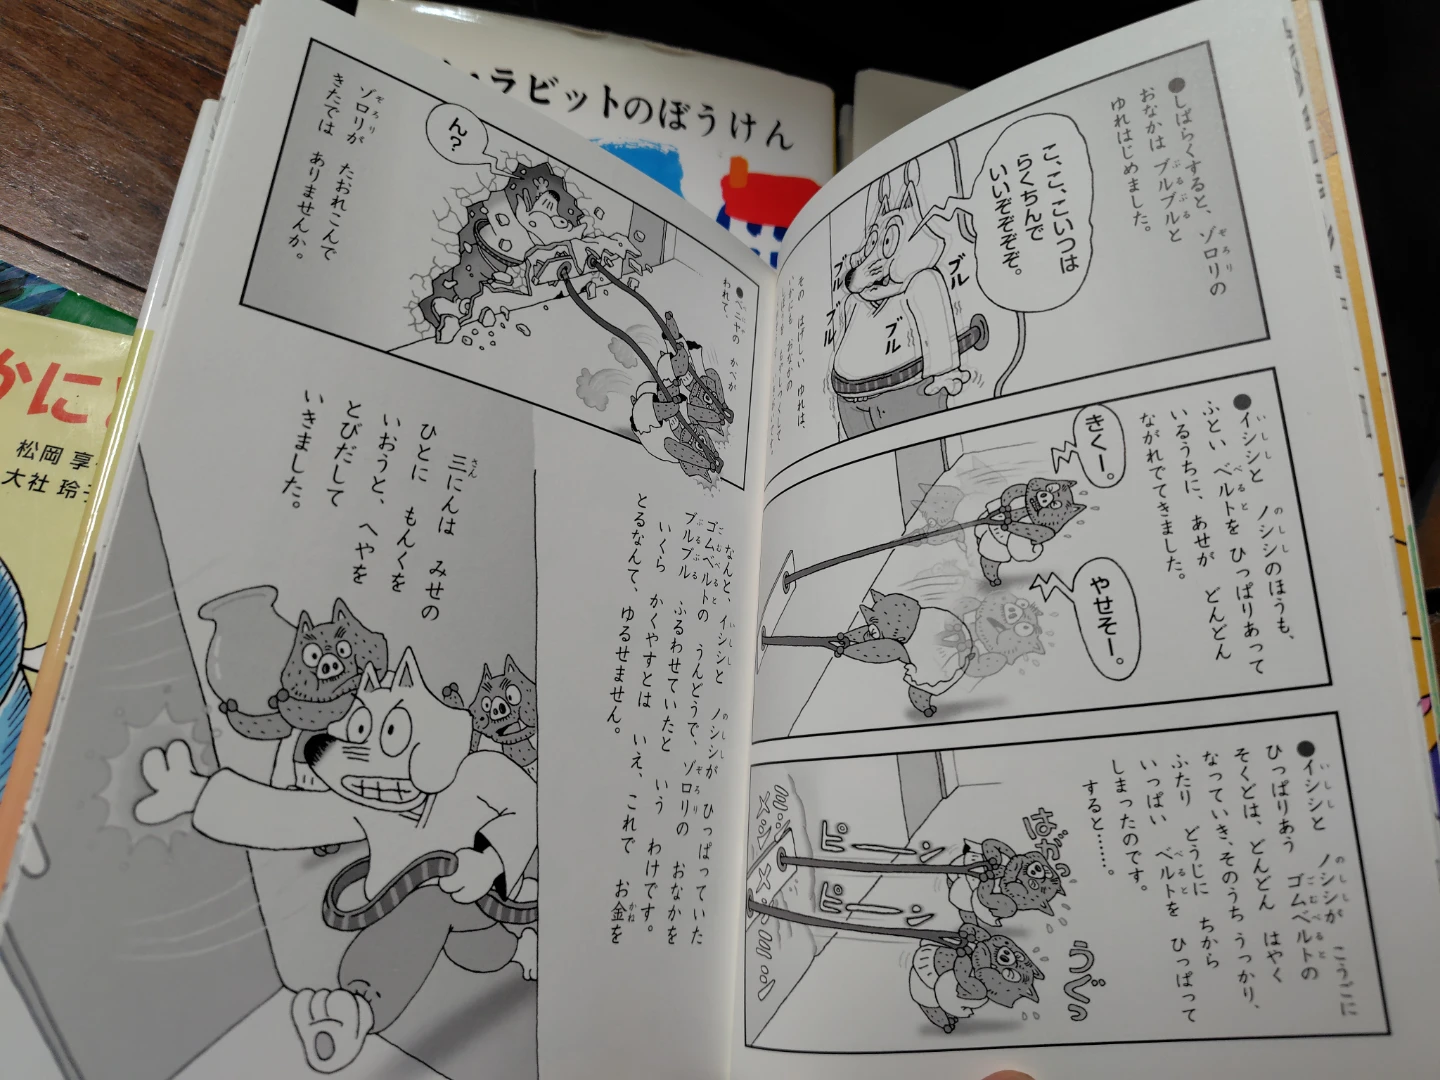 ●しばらくすると、ゾロリの
おなかは ブルブルと
ゆれはじめました。
こ、こ、こいつは
らくちんで
いいぞぞぞぞ。
ブル
ブル
ブル
その はげしい ゆれは、
●イシシと ノシシのほうも、
ふとい ベルトを ひっぱりあって
いるうちに、あせが どんどん
ながれでてきました。
きくー。
やせそー。
●イシシと ノシシが こうごに
ひっぱりあう ゴムベルトの
そくどは、どんどん はやく
なっていき、そのうち うっかり、
ふたり どうじに ちから
いっぱい ベルトを ひっぱって
しまったのです。
すると……。
はがっ
うぐっ
ピーン
ピーン
●ベニヤの かべが
われて、
ん?
ゾロリが たおれこんで
きたでは ありませんか。
なんと、イシシと ノシシが ひっぱっていた
ゴムベルトの うんどうで、ゾロリの おなかを
ブルブル ふるわせていたと いう わけです。
いくら かくやすとは いえ、これで お金を
とるなんて、ゆるせません。
三にんは みせの
ひとに もんくを
いおうと、へやを
とびだして
いきました。
ラビットのぼうけん
かに
松岡 享
大社 玲